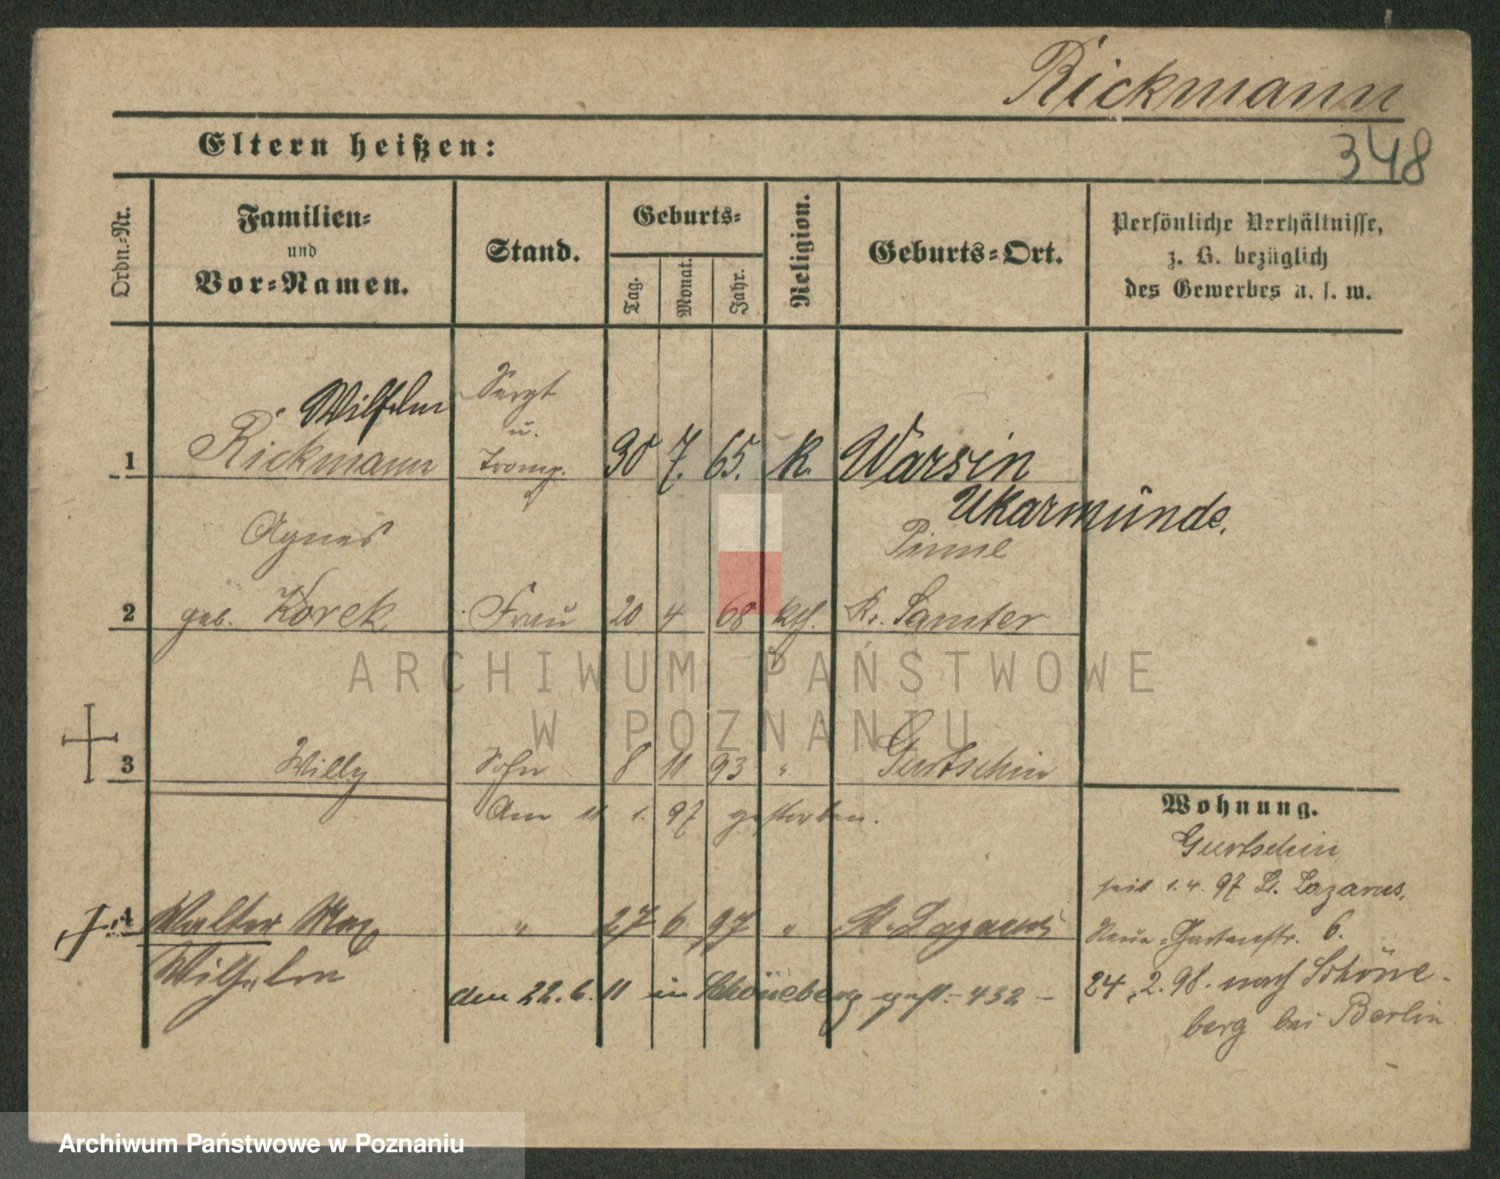 Rickmann
348
Eltern heißen:
Ordn.-Nr.
Familien-
und
Vor-Namen.
Stand.
Geburts-
Tag.
Monat.
Jahr.
Religion.
Geburts-Ort.
Persönliche Verhältnisse,
z. B. bezüglich
des Gewerbes u. s. w.
Wilhelm Sergt
u.
1 Rickmann Tromp. 30 7. 65. K. Warsin
Ukarmünde.
Agnes Pinne
2 geb. Korek Frau 20 4 68 kth. Kr. Samter
3 Willy Sohn 8 11 93 " Gurtschin
Am 11 1. 97 gestorben.
Wohnung.
Gurtschin
seit 1. 4. 97 St. Lazarus,
4 Walter Max " 27 6 97 " St. Lazarus
Neue-Gartenstr. 6.
Wilhelm
den 22. 6. 11 in Schöneberg gest. - 432 -
24. 2. 98. nach Schöne-
berg bei Berlin
ARCHIWUM PAŃSTWOWE
W POZNANIU
Archiwum Państwowe w Poznaniu